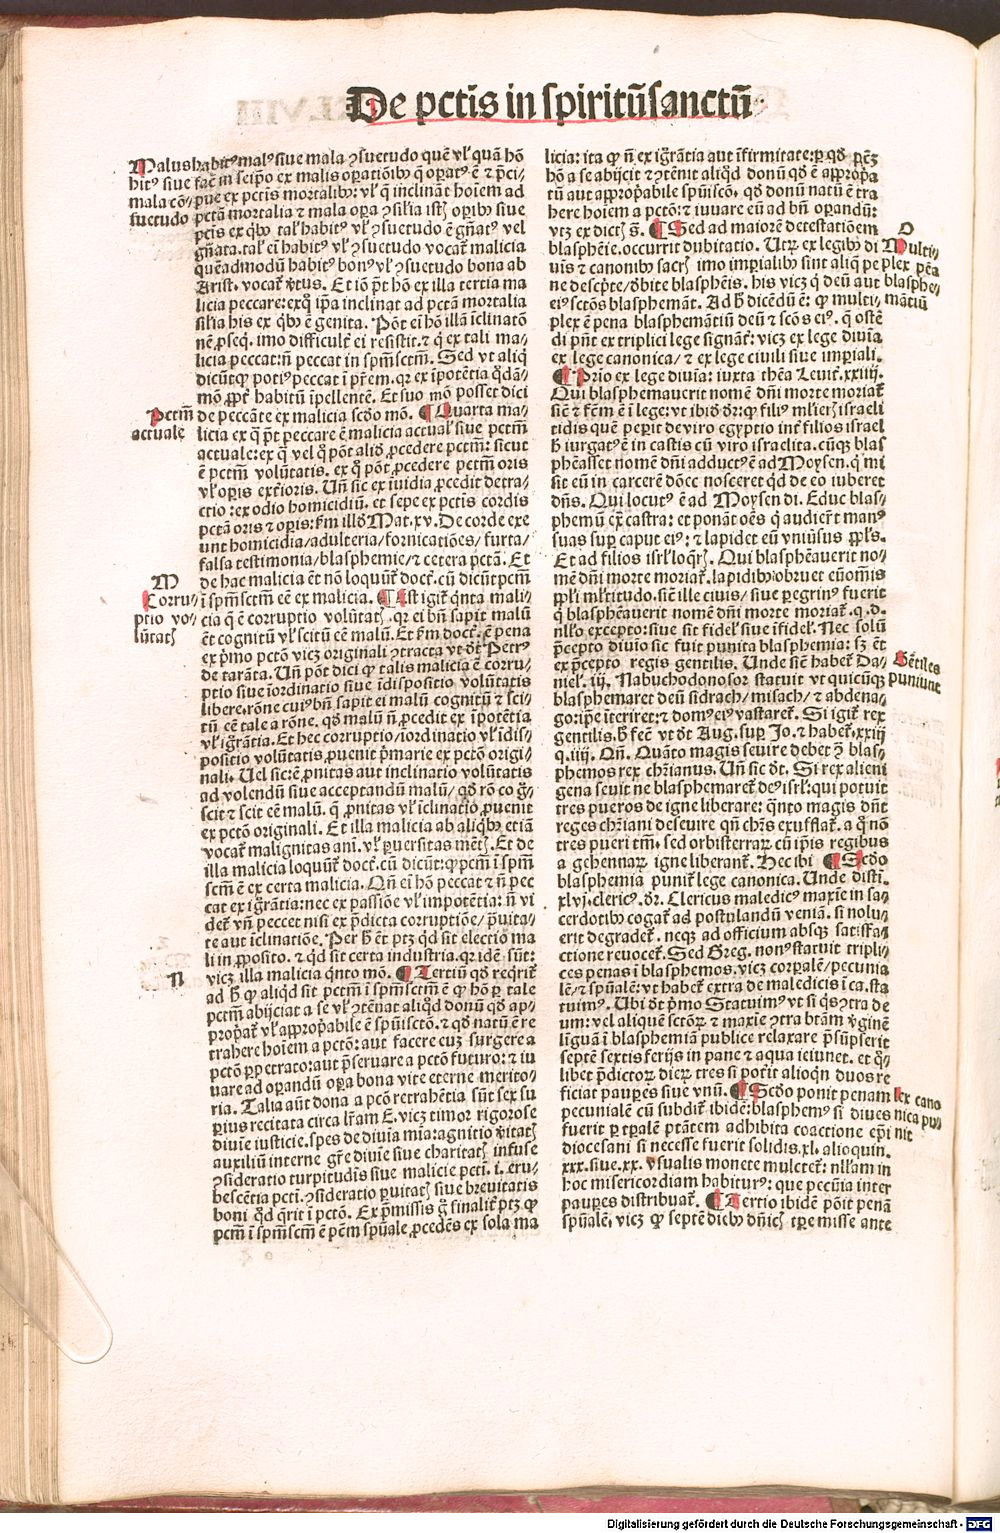 De pctis in spiritū sanctū.
Malus habitꝰ malꝰ siue mala ꝯsuetudo quē vl' quā hō
hitꝰ siue facͤ in seip̄o ex malis oꝑationibꝫ q̄ oꝑatꝰ ē ⁊ p̄ci-
mala cō- pue ex pctīs mortalibꝫ: vl' q̄ inclināt hoīem ad
suetudo pctā mortalia ⁊ mala oꝑa ⁊ sil'ia istꝫ oꝑibꝫ siue
pctīs ex qͥbꝫ tal' habitꝰ vl' ꝯsuetudo ē gn̄atꝰ vel
gn̄ata. tal' em̄ habitꝰ vl' ꝯsuetudo vocat̄ malicia
quēadmodū habitꝰ bonꝰ vl' ꝯsuetudo bona ab
Arist. vocat̄ v̄tus. Et iō pt̄ hō ex illa tertia ma
licia peccare: ex q̄ ip̄a inclinat ad pctā mortalia
sil'ia his ex qͥbꝫ ē genita. Pōt em̄ hō illā īclinatō
nē ꝓseq̄. imo difficult̄ ei resistit. ⁊ q̄ ex tali ma-
licia peccat: nō peccat in spm̄sctm̄. Sed vt aliq̄
dicūt qꝫ potiꝰ peccat ī pr̄em. qr ex īpotētia qͣdā-
mō ꝓpt̄ habitū īpellentē. Et suo mō posset dici
Pctm̄ de peccāte ex malicia scd̄o mō. ¶ Quarta ma-
actuale licia ex q̄ pt̄ peccare ē malicia actual' siue pctm̄
actuale: ex q̄ vel qͦ pōt aliō ꝓcedere pctm̄: sicut
ē pctm̄ volūtatis. ex qͦ pōt ꝓcedere pctm̄ oris
vl' oꝑis exterioris. Un̄ sic ex iuidia ꝓcedit detra-
ctio: ex odio homicidiū. et sepe ex pctīs cordis
pctā oris ⁊ oꝑis: s'm illō Mat. xv. De corde exe
unt homicidia/adulteria/fornicatiōes/furta/
falsa testimonia/blasphemie/⁊ cetera pctā. Et
M de hac malicia ēt nō loquūt̄ doct. cū dicūt pctm̄
Corru- ī spm̄sctm̄ eē ex malicia. ¶ Est igit̄ qͥnta mali-
ptio vo- cia q̄ ē corruptio volūtatꝫ. qr ei bn̄ sapit malū
lūtatꝫ ēt cognitū vl' scitū eē malū. Et s'm doct. ē pena
ex pͥmo pctō vicꝫ originali ꝯtracta vt dt̄ Petrꝰ
de tarāta. Un̄ pōt dici qꝫ talis malicia ē corru-
ptio siue īordinatio siue īdispositio volūtatis
libere. rōne cuiꝰ bn̄ sapit ei malū cognitū ⁊ sci-
tū eē tale a rōne. qd̄ malū nō ꝓcedit ex īpotētia
vl' igrātia. Et hec corruptio/īordinatio vl' īdis-
positio volūtatis ꝓuenit pͥmarie ex pctō origi-
nali. Uel sic: ē ꝓnitas aut inclinatio volūtatis
ad volendū siue acceptandū malū/ qd̄ rō cogͦ-
scit ⁊ scit eē malū. q̄ ꝓnitas vl' īclinatio ꝓuenit
ex pctō originali. Et illa malicia ab aliqͥbꝫ etiā
vocat̄ malignitas ani. vl' ꝑuersitas mētꝫ. Et de
illa malicia loquūt̄ doct. cū dicūt: qꝫ pctm̄ ī spm̄
sctm̄ ē ex certa malicia. Qn̄ em̄ hō peccat ⁊ nō pec
cat ex igrātia: nec ex passiōe vl' impotētia: nō vi
det̄ vn̄ peccet nisi ex p̄dicta corruptiōe/ p̄uita-
te aut īclinatiōe. Per hͦ ēt ptꝫ qͥd sit electio ma
li in ꝓposito. ⁊ qͥd sit certa industria. qr idē sūt:
N vicꝫ illa malicia qͥnto mō. ¶ Tertiū qd̄ reqͥrit̄
ad hͦ qꝫ aliqͥd sit pctm̄ ī spm̄sctm̄ ē qꝫ hō ꝑ tale
pctm̄ abijciat a se vl' ꝯtēnat aliqͥd donū qd̄ ap-
ꝓpriat̄ vl' appropͥabile ē spūisctō. ⁊ qd̄ natū ē re
trahere hoīem a pctō: aut facere cuꝫ surgere a
pctō ꝑpetrato: aut p̄seruare a pctō futuro: ⁊ iu
uare ad oꝑandū oꝑa bona vite eterne merito-
ria. Talia aūt dona a pctō retrahētia sūt sex su
ꝑius recitata circa lr̄am E. vicꝫ timor rigorose
diuīe iusticie. spes de diuīa mīa: agnitio vͥitatꝫ
auxiliū interne gr̄e diuīe siue charitatꝫ infuse
ꝯsideratio turpitudīs siue malicie pcti. i. eru-
bescētia pcti. ꝯsideratio ꝑuitatꝫ siue breuitatis
boni qd̄ qͥrit ī pctō. Ex pͥmissis gͦ finalit̄ ptꝫ qꝫ
pctm̄ ī spm̄sctm̄ ē pctm̄ spūale ꝓcedēs ex sola ma
licia: ita qꝫ nō ex igrātia aut īfirmitate: ꝑ qd̄ peccās
hō a se abijcit ⁊ ꝯtēnit aliqͥd donū qd̄ ē appropͥa
tū aut appropͥabile spūisctō. qd̄ donū natū ē tra
here hoīem a pctō: ⁊ iuuare eū ad bn̄ oꝑandū:
vtꝫ ex dictꝫ s̄. ¶ Sed ad maiorē detestatiōem
O
blasphēie. occurrit dubitatio. Utꝝ ex legibꝫ di Multi-
uis ⁊ canonibꝫ sacrꝫ imo imꝑialibꝫ sint aliq̄ pe plex pēa
ne descpte/ debite blasphēis. his vicꝫ q̄ deū aut blasphe-
eiꝰ sctōs blasphemāt. Ad hͦ dicēdū ē: qꝫ multi- mātiū
plex ē pena blasphemātiū deū ⁊ scōs eiꝰ. q̄ ostē
di pn̄t ex triplici lege signāt: vicꝫ ex lege diuīa
ex lege canonica/ ⁊ ex lege ciuili siue imꝑiali.
¶ Pͥmo ex lege diuīa: iuxta thēa Leuit. xxiiij.
Qui blasphemauerit nomē dn̄i morte moriat̄
sicͤ ⁊ s'm ē ī lege: vt ibid' dr̄: qꝫ filiꝰ ml'ieris israeli
tidis quē peꝑit de viro egyptio int̄ filios israel
hͦ iurgatꝰ ē in castis cū viro israelita. cūqꝫ blas
phēasset nomē dn̄i adductꝰ ē ad Moysen. q̄ mi
sit eū in carcerē donec nosceret qͥd de eo iuberet
dn̄s. Qui locutꝰ ē ad Moysen di. Educ blas-
phemū ex̄ castra: et ponāt oēs q̄ audierūt manꝰ
suas suꝑ caput eiꝰ: ⁊ lapidet eū vniūsus ppl's.
Et ad filios isrl' loq̄rꝫ. Qui blasphēauerit no-
mē dn̄i morte moriat̄. lapidibꝫ obruet eū oīs
ppl'i ml'titudo. siue ille ciuis/ siue ꝑegrinꝰ fuerit
qͥ blasphēauerit nomē dn̄i morte moriat̄. q. d.
nl'lo excepto: siue sit fidel' siue īfidel'. Nec solū
p̄cepto diuīo sic fuit punita blasphemia: sꝫ et
ex p̄cepto regis gentilis. Unde sicͤ habet̄ Da- Gētiles
niel'. iij. Nabuchodonosor statuit vt quicūqꝫ puniunt
blasphemaret deū sidrach/ misach/ ⁊ abdena-
go ip̄e īteriret: ⁊ domꝰ eiꝰ vastaret̄. Si igit̄ rex
gentilis. hͦ fecͤ vt dt̄ Aug. suꝑ Jo. ⁊ habet̄. xxiij
q. iiij. Qn̄. Quāto magis seuire debet ꝯ̄ blas-
phemos rex chr̄ianus. Un̄ sic dt̄. Si rex alieni
gena seuit ne blasphemaret̄ deꝰ isrl': qui potuit
tres pueros de igne liberare: qͣnto magis dn̄t
reges chr̄iani deseuire qn̄ chr̄s exufflat̄. a q̄ nō
tres pueri tm̄. sed orbisterrarꝝ cū ip̄is regibus
a gehennarꝝ igne liberant̄. Hec ibi ¶ Scd̄o
blasphemia punit̄ lege canonica. Unde disti.
xlvj. clericꝰ. dr̄. Clericus maledicꝰ maxie in sa-
cerdotibꝫ cogat̄ ad postulandū veniā. si nolu-
erit degradet̄. neqꝫ ad officium absqꝫ satisfa-
ctione reuocet̄. Sed Greg. nonꝰ statuit tripli-
ces penas ī blasphemos. vicꝫ corꝑalē/ pecunia
lē/ ⁊ spūalē: vt habet̄ extra de maledicis ī ca. sta
tuimꝰ. Ubi dt̄ pͥmo Statuimꝰ vt si qͥs ꝯtra de
um: vel aliquē sctōꝝ ⁊ maxīe ꝯtra btām vͥginē
līguā ī blasphemiā publice relaxare p̄sūpserit
septē sextis ferijs in pane ⁊ aqua ieiunet. et qͣ-
libet p̄dictoꝝ dieꝝ tres si poterit alioqn̄ duos re
ficiat pauꝑes siue vnū. ¶ Scd̄o ponit penam Ex cano
pecunialē cū subdit̄ ibidē: blasphemꝰ si diues nica pu-
fuerit ꝑ tꝑalē ptātem adhibita coactione epī nit
diocesani si necesse fuerit solidis. xl. alioquin.
xxx. siue. xx. vsualis monete mulctet̄: nl'lam in
hoc misericordiam habiturꝰ: que pecūia inter
pauꝑes distribuat̄. ¶ Tertio ibidē pōit penā
spūalē, vicꝫ qꝫ septē diebꝫ dn̄icꝫ tꝑe misse ante
Digitalisierung gefördert durch die Deutsche Forschungsgemeinschaft - DFG